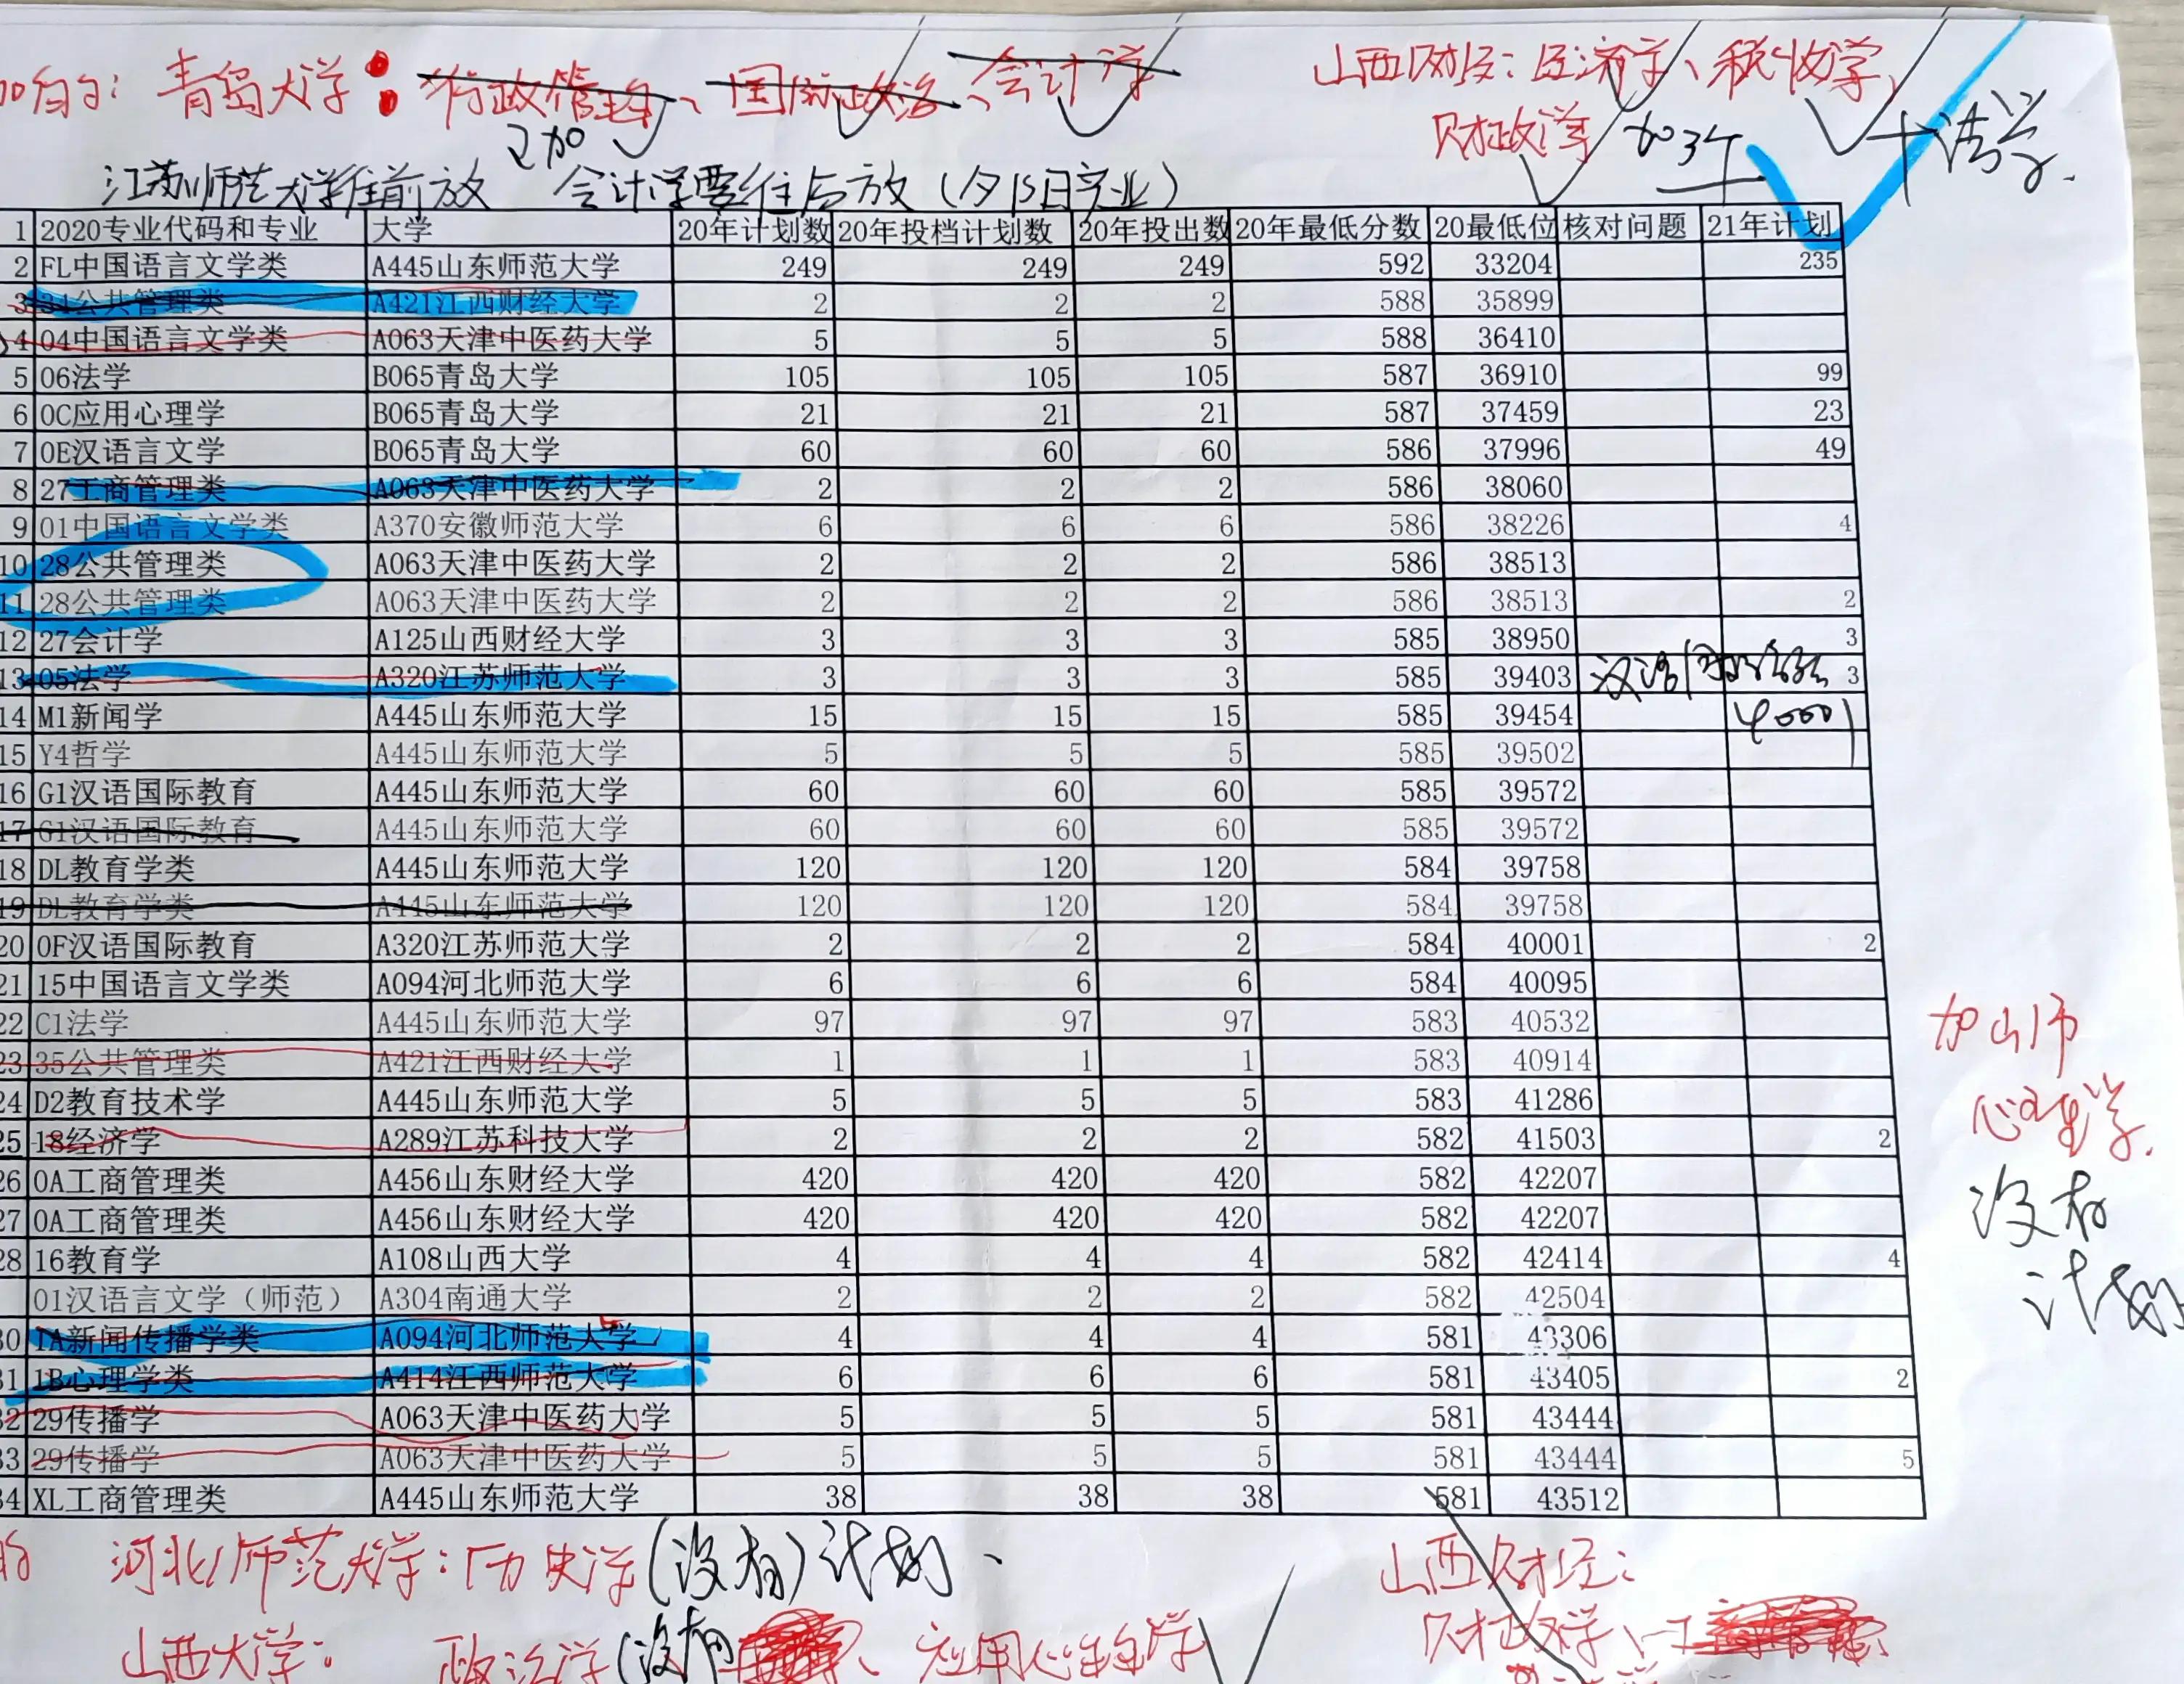 加的：青岛大学：行政管理、国际政治、会计学
山西财经：经济学、税收学、
财政学 加3个 十法学.
已加
江苏师范大学往前放 会计学要往后放（夕15日实业）
1 2020专业代码和专业 大学 20年计划数 20年投档计划数 20年投出数 20年最低分数 20最低位 核对问题 21年计划
2 FL中国语言文学类 A445山东师范大学 249 249 249 592 33204 235
3 34公共管理类 A421江西财经大学 2 2 2 588 35899
4 04中国语言文学类 A063天津中医药大学 5 5 5 588 36410
5 06法学 B065青岛大学 105 105 105 587 36910 99
6 0C应用心理学 B065青岛大学 21 21 21 587 37459 23
7 0E汉语言文学 B065青岛大学 60 60 60 586 37996 49
8 27工商管理类 A063天津中医药大学 2 2 2 586 38060
9 01中国语言文学类 A370安徽师范大学 6 6 6 586 38226 4
10 28公共管理类 A063天津中医药大学 2 2 2 586 38513
11 28公共管理类 A063天津中医药大学 2 2 2 586 38513 2
12 27会计学 A125山西财经大学 3 3 3 585 38950 3
13 05法学 A320江苏师范大学 3 3 3 585 39403 汉语 3
14 M1新闻学 A445山东师范大学 15 15 15 585 39454 40001
15 Y4哲学 A445山东师范大学 5 5 5 585 39502
16 G1汉语国际教育 A445山东师范大学 60 60 60 585 39572
17 G1汉语国际教育 A445山东师范大学 60 60 60 585 39572
18 DL教育学类 A445山东师范大学 120 120 120 584 39758
19 DL教育学类 A445山东师范大学 120 120 120 584 39758
20 0F汉语国际教育 A320江苏师范大学 2 2 2 584 40001 2
21 15中国语言文学类 A094河北师范大学 6 6 6 584 40095
22 C1法学 A445山东师范大学 97 97 97 583 40532
23 35公共管理类 A421江西财经大学 1 1 1 583 40914
24 D2教育技术学 A445山东师范大学 5 5 5 583 41286
25 18经济学 A289江苏科技大学 2 2 2 582 41503 2
26 0A工商管理类 A456山东财经大学 420 420 420 582 42207
27 0A工商管理类 A456山东财经大学 420 420 420 582 42207
28 16教育学 A108山西大学 4 4 4 582 42414 4
01汉语言文学（师范） A304南通大学 2 2 2 582 42504
30 1A新闻传播学类 A094河北师范大学 4 4 4 581 43306
31 1B心理学类 A414江西师范大学 6 6 6 581 43405 2
32 29传播学 A063天津中医药大学 5 5 5 581 43444
33 29传播学 A063天津中医药大学 5 5 5 581 43444 5
34 XL工商管理类 A445山东师范大学 38 38 38 581 43512
加山师
心理学.
没有
计划
的 河北师范大学：历史学（没有）计划、
山西大学： 政治学（没有 、应用心理学
山西财经：
财政学、